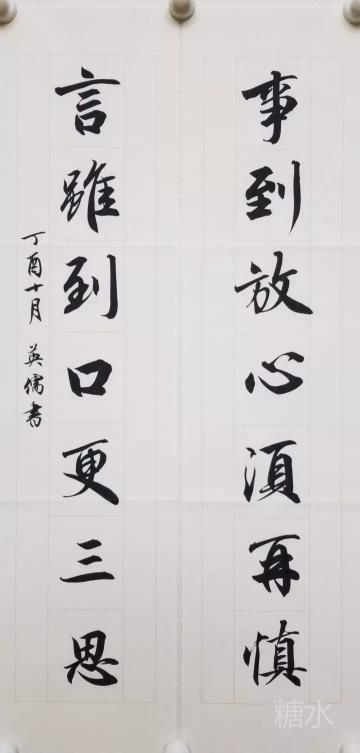 事到放心須再慎
言雖到口更三思
丁酉十月 英儒書
糖水